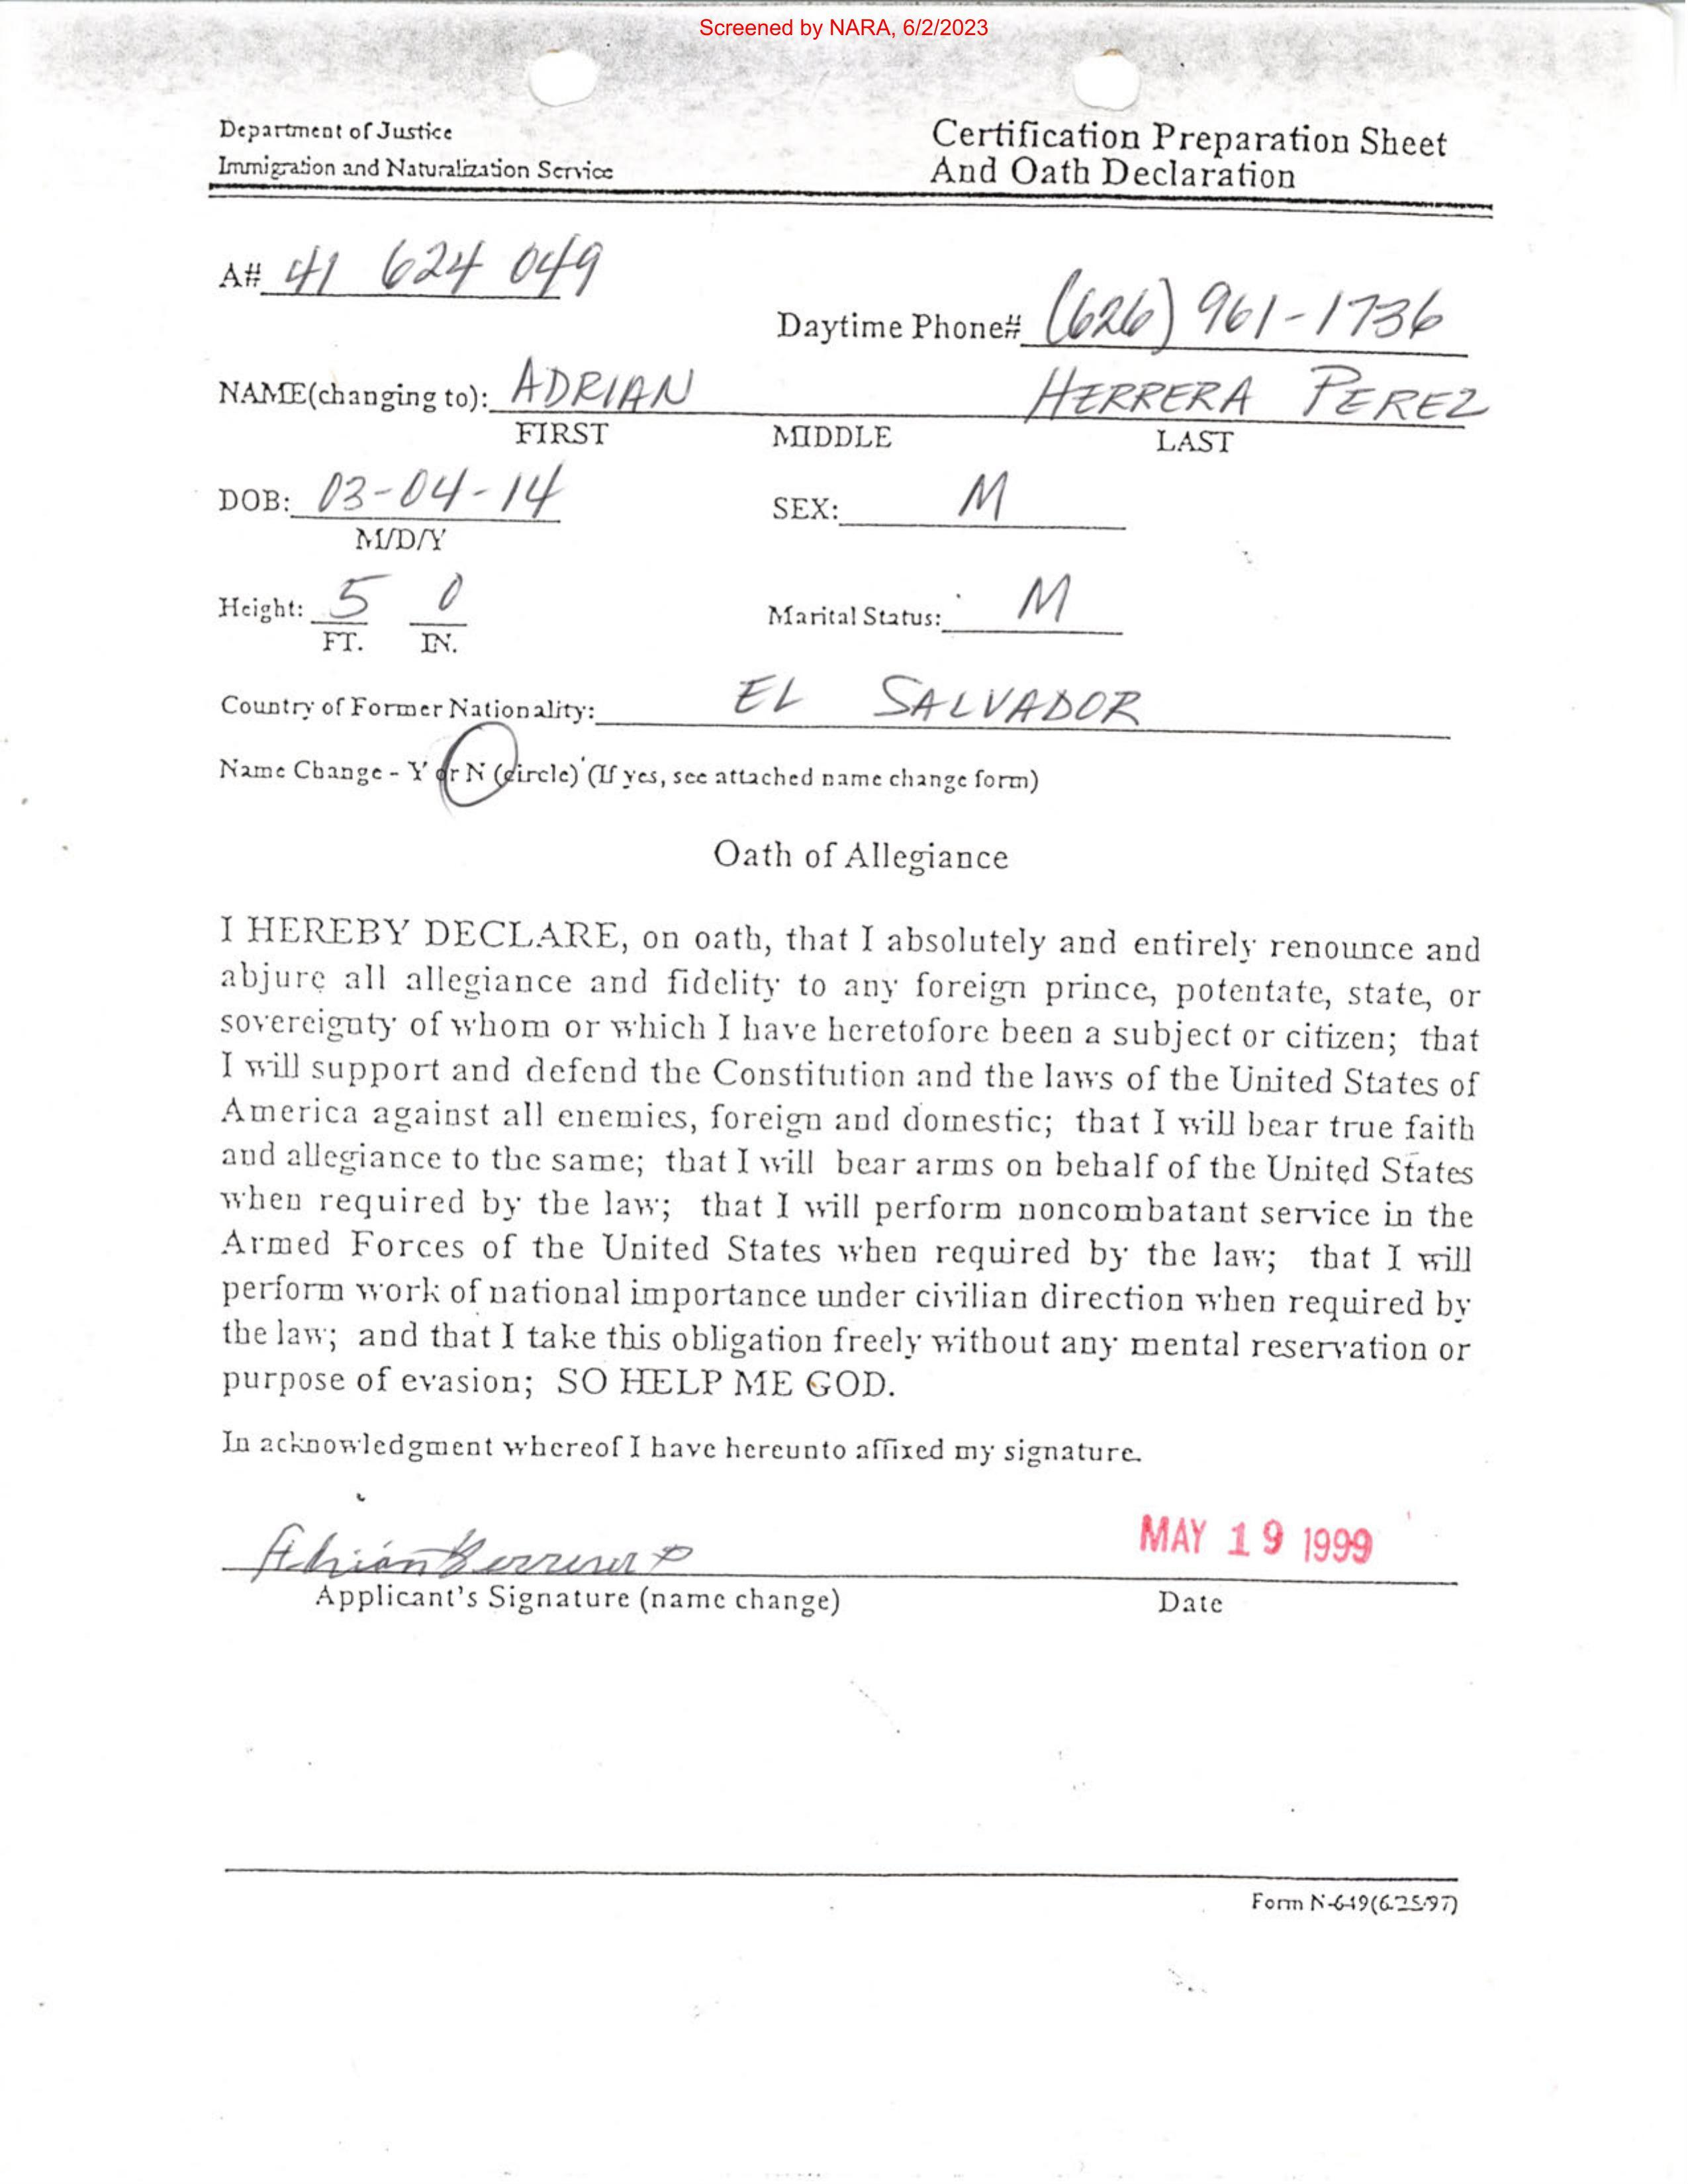 Screened by NARA, 6/2/2023
Department of Justice
Immigration and Naturalization Service
Certification Preparation Sheet
And Oath Declaration
A# 41 624 049
Daytime Phone# (626) 961-1736
NAME(changing to): ADRIAN HERRERA PEREZ
FIRST MIDDLE LAST
DOB: 03-04-14 SEX: M
M/D/Y
Height: 5 0 Marital Status: M
FT. IN.
Country of Former Nationality: EL SALVADOR
Name Change - Y or N (circle) (If yes, see attached name change form)
Oath of Allegiance
I HEREBY DECLARE, on oath, that I absolutely and entirely renounce and
abjure all allegiance and fidelity to any foreign prince, potentate, state, or
sovereignty of whom or which I have heretofore been a subject or citizen; that
I will support and defend the Constitution and the laws of the United States of
America against all enemies, foreign and domestic; that I will bear true faith
and allegiance to the same; that I will bear arms on behalf of the United States
when required by the law; that I will perform noncombatant service in the
Armed Forces of the United States when required by the law; that I will
perform work of national importance under civilian direction when required by
the law; and that I take this obligation freely without any mental reservation or
purpose of evasion; SO HELP ME GOD.
In acknowledgment whereof I have hereunto affixed my signature.
Adrián Herrera P
MAY 19 1999
Applicant's Signature (name change) Date
Form N-649(6.25.97)